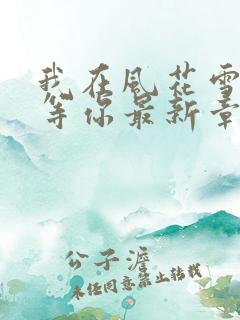 我在风花雪
等你最新章
公子澹
未经同意禁止转载